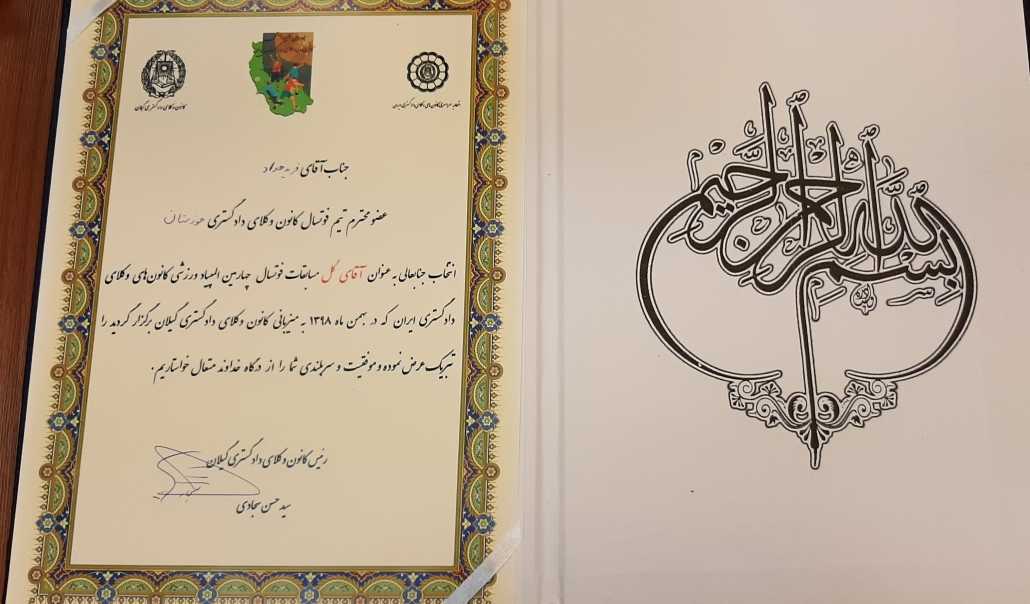 کانون وکلای دادگستری گیلان
جناب آقای فرید
عضو محترم تیم فوتسال کانون وکلای دادگستری خوزستان
انتخاب جنابعالی به عنوان آقای گل مسابقات فوتسال چهارمین المپیاد ورزشی کانون‌های وکلای
دادگستری ایران که در بهمن ماه ۱۳۹۸ به میزبانی کانون وکلای دادگستری گیلان برگزار گردید را
تبریک عرض نموده و موفقیت و سربلندی شما را از درگاه خداوند متعال خواستاریم.
رئیس کانون وکلای دادگستری گیلان
سید حسن سجادی
بسم الله الرحمن الرحیم